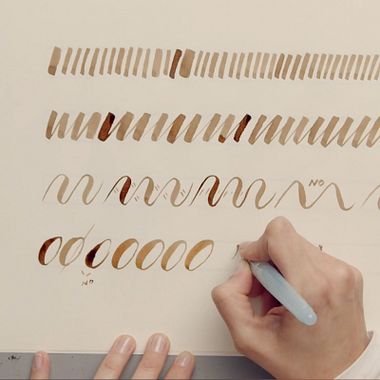 NO
NO